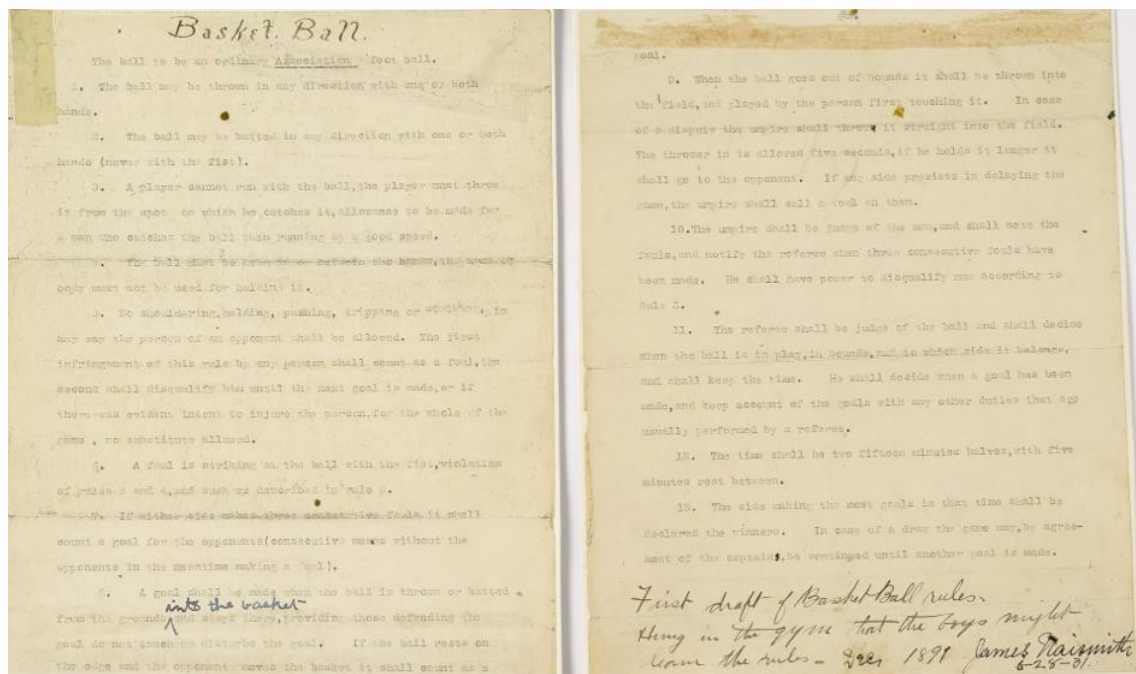 Basket Ball.
The ball to be an ordinary Association foot ball.
1. The ball may be thrown in any direction with one or both
hands.
2. The ball may be batted in any direction with one or both
hands (never with the fist).
3. A player cannot run with the ball, the player must throw
it from the spot on which he catches it, allowance to be made for
a man who catches the ball when running at a good speed.
4. The ball must be held in or between the hands, the arms or
body must not be used for holding it.
5. No shouldering, holding, pushing, tripping or striking, in
any way the person of an opponent shall be allowed. The first
infringement of this rule by any person shall count as a foul, the
second shall disqualify him until the next goal is made, or if
there was evident intent to injure the person, for the whole of the
game, no substitute allowed.
6. A foul is striking at the ball with the fist, violation
of rules 3 and 4, and such as described in rule 5.
7. If either side makes three consecutive fouls it shall
count a goal for the opponents (consecutive means without the
opponents in the meantime making a foul).
8. A goal shall be made when the ball is thrown or batted
into the basket
from the grounds and stays there, providing those defending the
goal do not touch or disturb the goal. If the ball rests on
the edge and the opponent moves the basket it shall count as a
goal.
9. When the ball goes out of bounds it shall be thrown into
the field, and played by the person first touching it. In case
of a dispute the umpire shall throw it straight into the field.
The thrower in is allowed five seconds, if he holds it longer it
shall go to the opponent. If any side persists in delaying the
game, the umpire shall call a foul on them.
10. The umpire shall be judge of the men, and shall note the
fouls, and notify the referee when three consecutive fouls have
been made. He shall have power to disqualify men according to
Rule 5.
11. The referee shall be judge of the ball and shall decide
when the ball is in play, in bounds, and to which side it belongs,
and shall keep the time. He shall decide when a goal has been
made, and keep account of the goals with any other duties that are
usually performed by a referee.
12. The time shall be two fifteen minutes halves, with five
minutes rest between.
13. The side making the most goals in that time shall be
declared the winners. In case of a draw the game may, be agree-
ment of the captains, be continued until another goal is made.
First draft of Basket Ball rules.
Hung in the gym that the boys might
learn the rules - Dec. 1891 James Naismith
6-28-31.